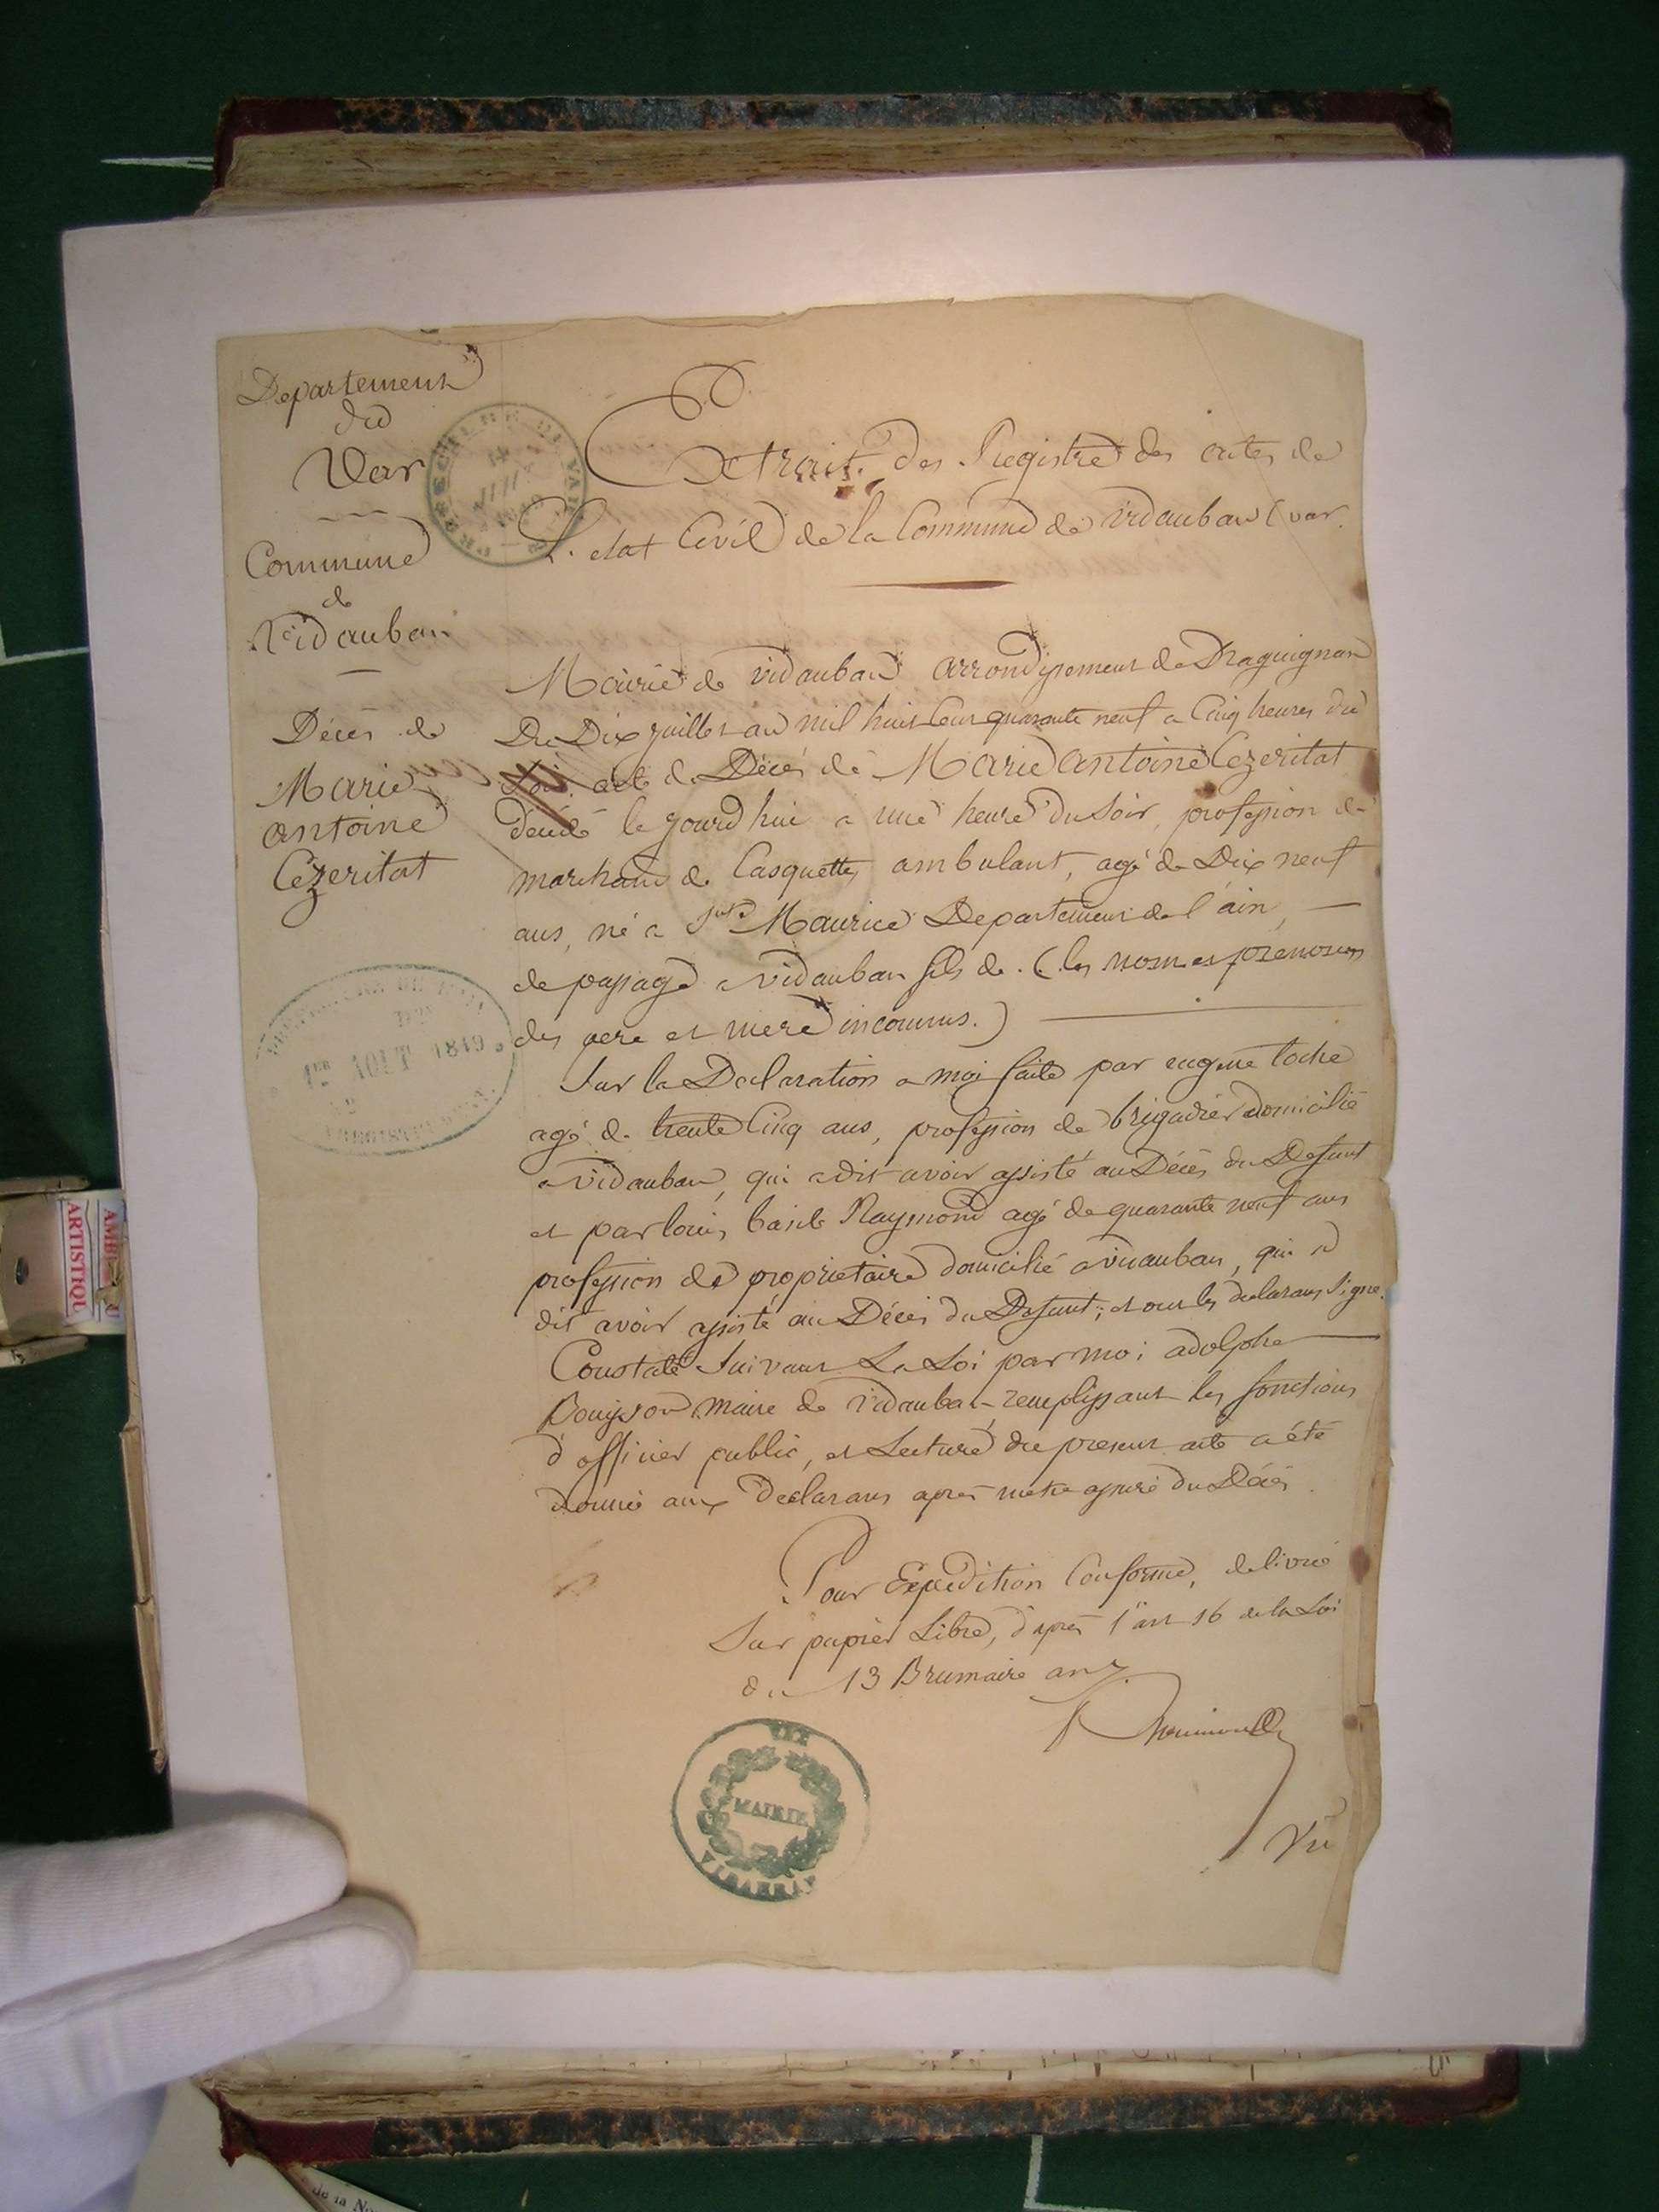 Departement
du
Var
Commune
de
Vidauban
Décès de
Marie
antoine
Cézeritat
PREFECTURE DU VAR
Extrait des Registre des actes de
L'etat Civil de la Commune de vidauban (var.
Mairie de vidauban arrondissement de Draguignan
Du Dix juillet an mil huit cent quarante neuf a Cinq heures du
Soir. acte de Décés de Marie antoine Cezeritat
décédé le jourd'hui a une heure du soir, profession de
marchand de Casquettes ambulant, agé de Dix neuf
ans, né a St Maurice Departement de l'ain,
de passage a vidauban fils de. (les noms et prenoms
des pere et mere inconnus.)
Sur la Declaration a moi faite par eugene toche
agé de trente Cinq ans, profession de brigadier domicilié
a vidauban, qui a dit avoir assisté au Décès du Defunt
et par louis basile Raymond agé de quarante neuf ans
profession de proprietaire domicilié a vidauban, qui a
dit avoir assisté au Décès du Defunt; et ont les declarans Signé.
Constaté Suivant La Loi par moi adolphe
Bouisson maire de vidauban remplissant les fonctions
d'officier public, et Lecture du present acte a été
donné aux Declarans après m'etre assuré du Décès.
Pour Expedition Conforme, delivré
Sur papier Libre, d'après l'art 16 de la Loi
du 13 Brumaire an 7.
Vu
1ER AOUT 1849
MAIRIE
VIDAUBAN
VAR
AMB
ARTISTIQU
de la No